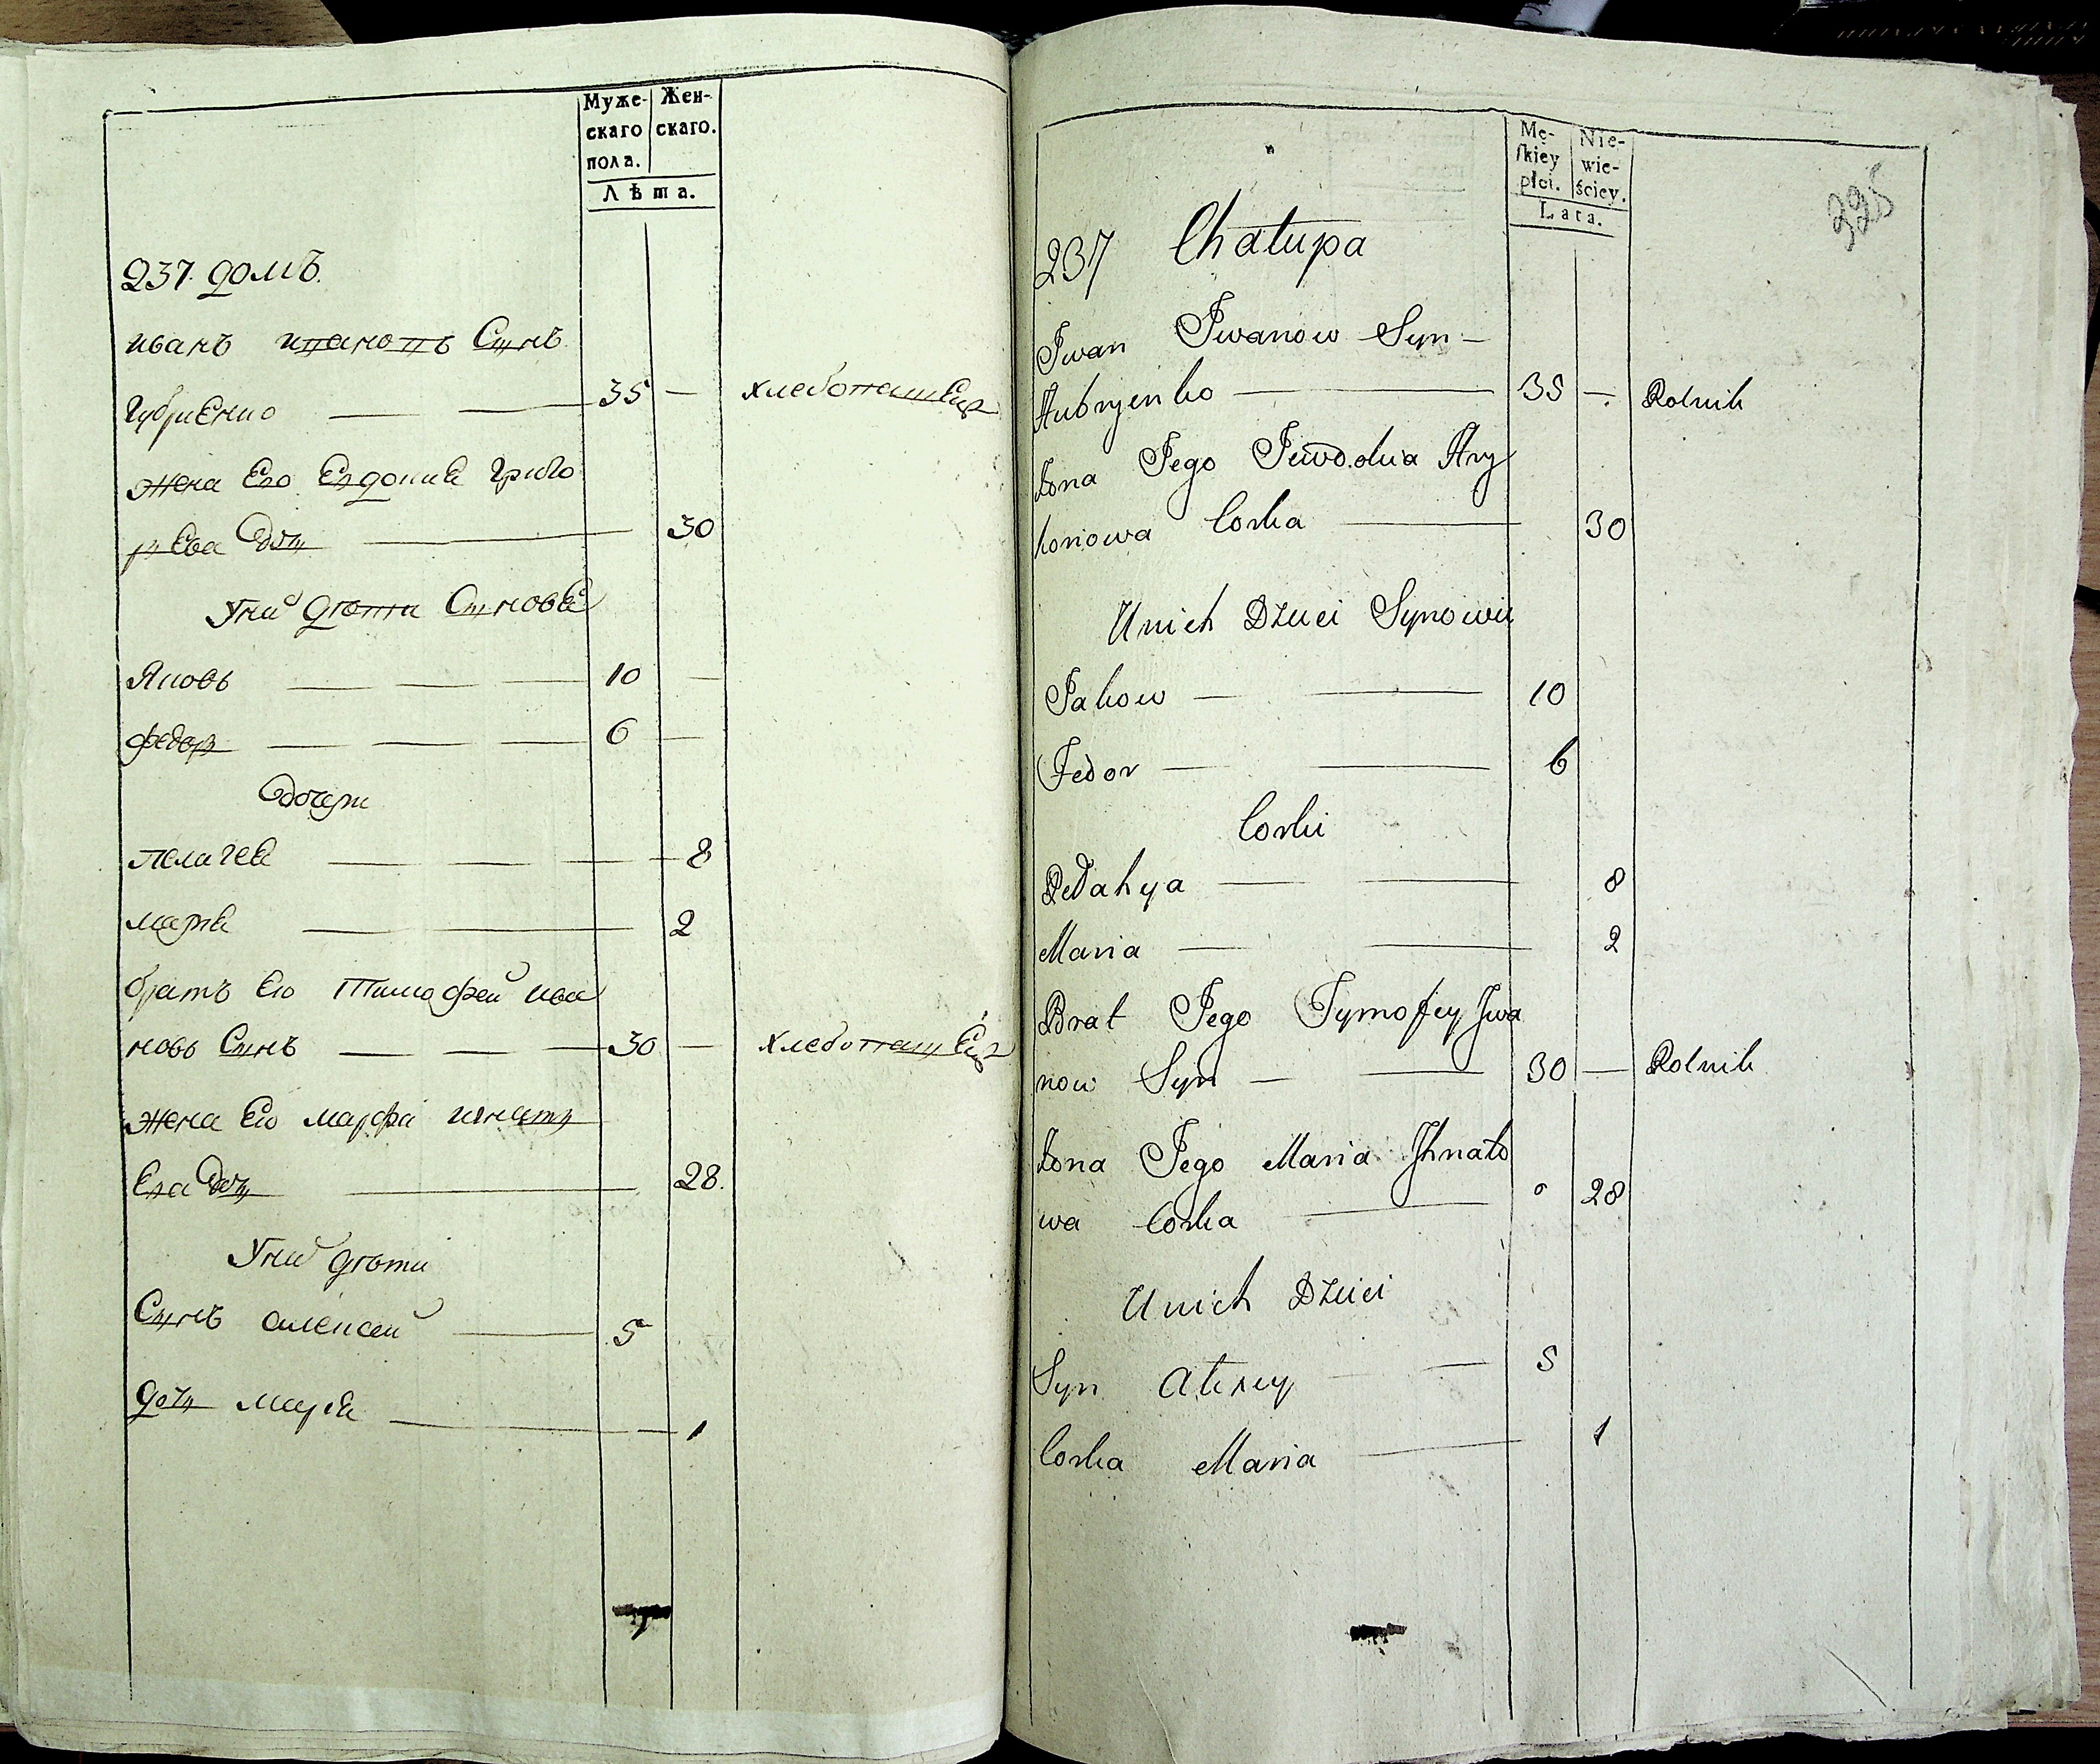 Муже-
скаго
пола.
Жен-
скаго.
Лѣта.
237. домъ.
иванъ ивановъ Сынъ
Губриенко 35 — хлебопашец
жена Его Евдокиа Григо
рьева дочь 30
У них дѣти Сыновья
Яковъ 10 —
федоръ 6 —
дочери
пелагеа 8
мариа 2
братъ Его Тимофей ива
новъ Сынъ 30 — хлебопашец
жена Его марфа игнать
ева дочь 28.
У них дѣти
Сынъ алексей 5
дочь мариа 1
Mę-
skiey
płci.
Nie-
wie-
ściey.
Lata.
325
237 Chałupa
Jwan Jwanow Syn —
Hubryenko 35 — Rolnik
Żona Jego Jewdokia Hry
horiowa Corka 30
U nich Dzieci Synowie
Jakow 10
Fedor 6
Corki
Pełahya 8
Maria 2
Brat Jego Tymofey Jwa
now Syn 30 — Rolnik
Żona Jego Maria Jhnato
wa Corka 28
U nich Dzieci
Syn Alexey 5
Corka Maria 1